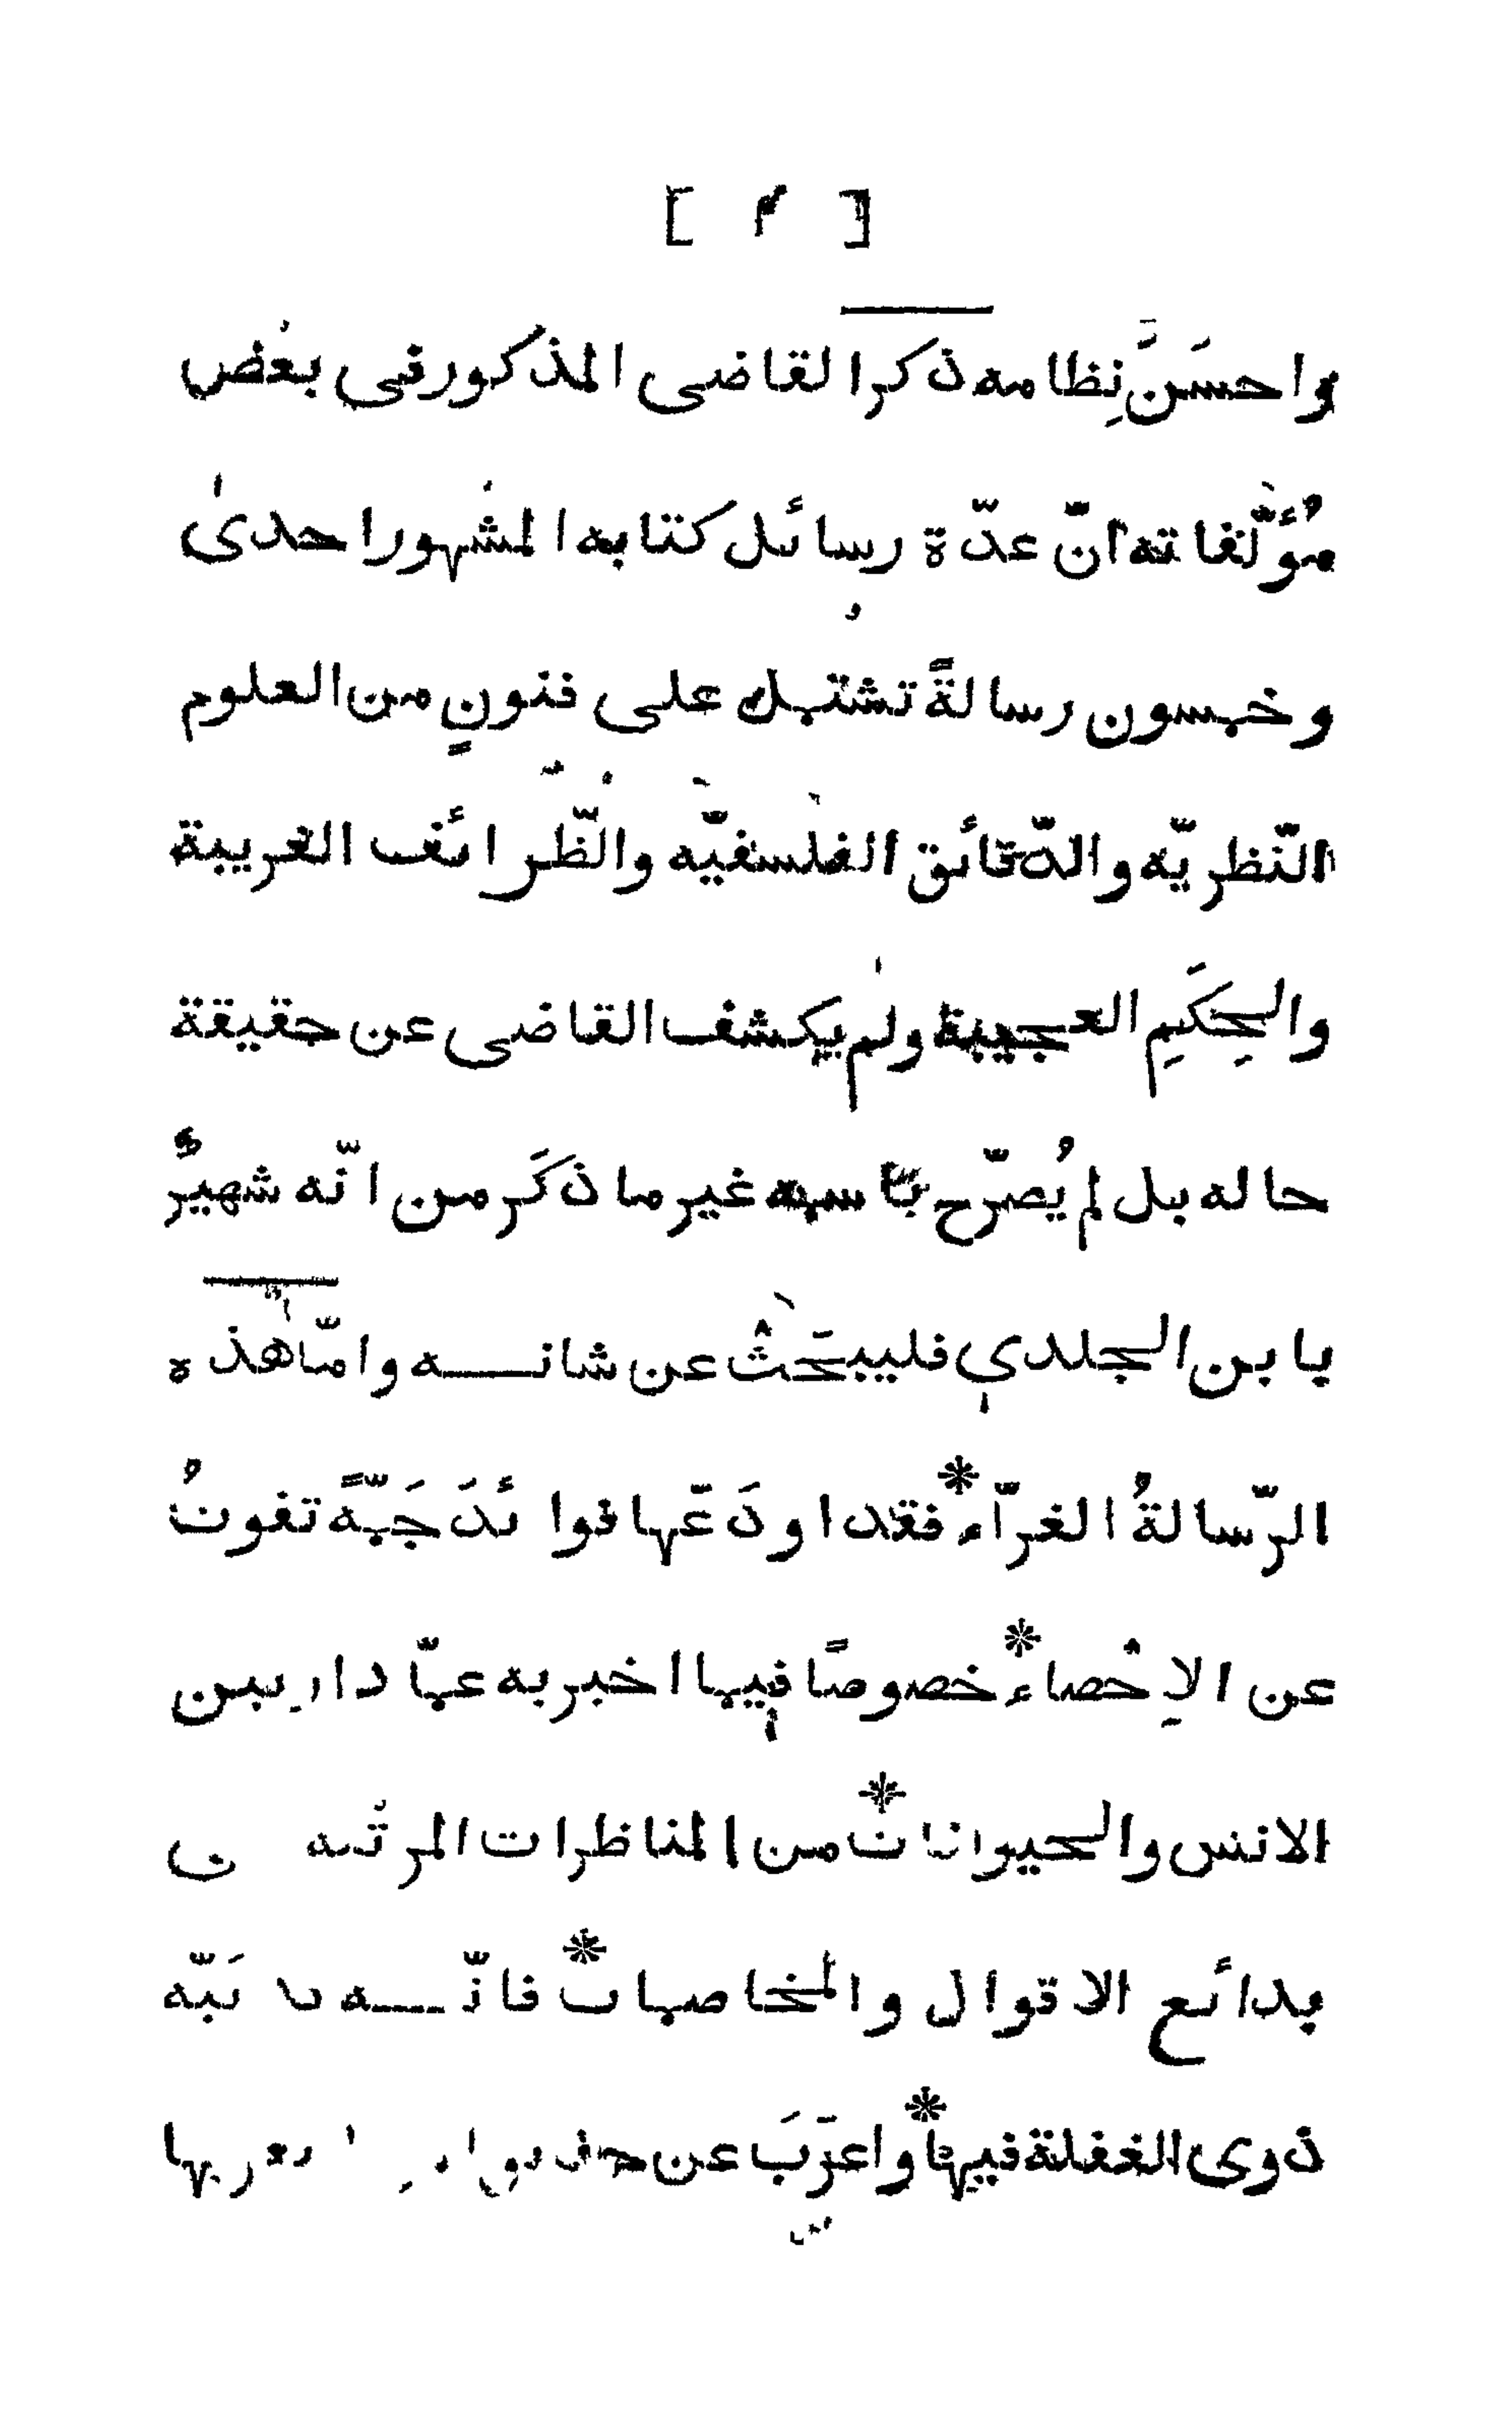 واحسَنَ نِظامه ذكر القاضى المذكور فى بعْض
مُؤلَّفاته انّ عدّة رسائل كتابه المشْهور احدىٰ
وخمسون رسالةً تشتمل على فنونٍ من العلوم
النّظريّه والدّقائق الفلْسفيّه والظّرائف الغريبة
والحِكَمِ العجيبة ولم يكشف القاضى عن حقيقة
حاله بل لم يُصرّح باسمه غير ما ذكَر من انّه شهيرٌ
بابن الجلدي فليبحَثْ عن شانه وامّا هٰذه
الرّسالةُ الغرّاء* فقد اودَعَها فوائدَ جَمّةً تفوتُ
عن الاِحْصاء* خصوصًا فيما اخبر به عمّا دار بين
الانس والحيوانات* من المناظرات
بدائع الاقوال والمخاصمات* فانّه نَبّه
ذوى الغفلة فيها* واعرَبَ عن